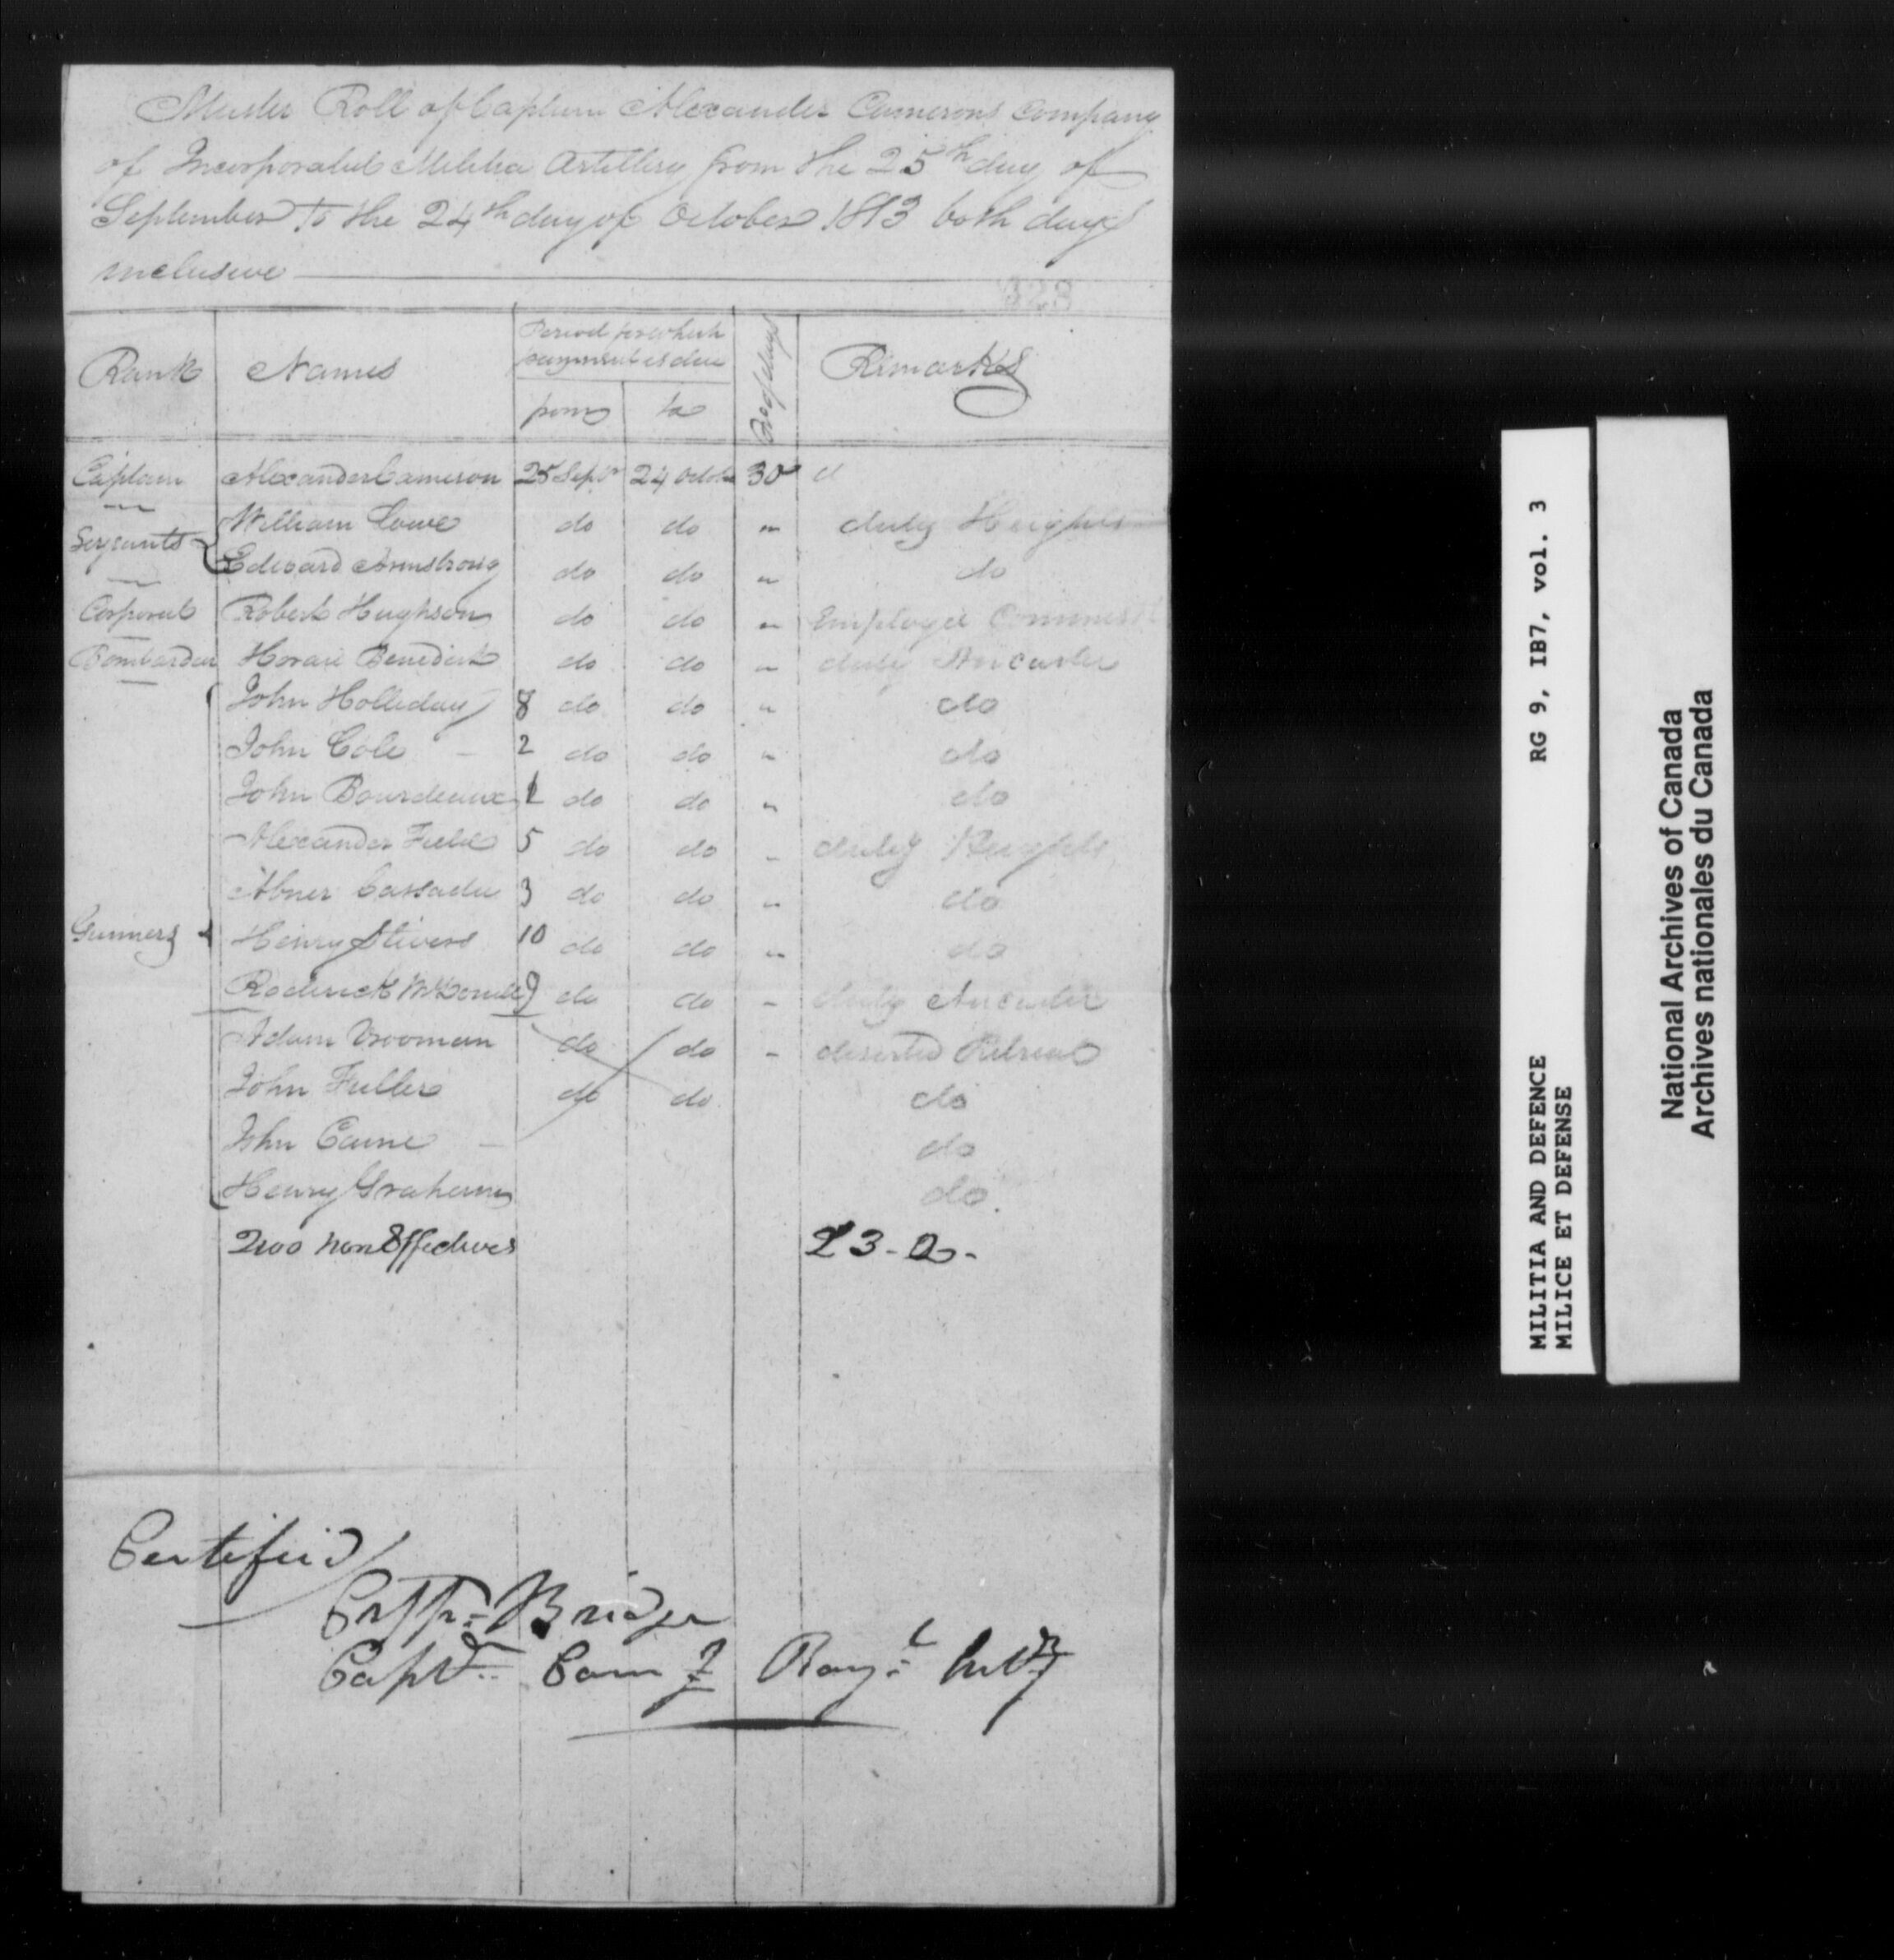 Muster Roll of Captain Alexander Camerons Company
of Incorporated Militia Artillery from the 25th day of
September to the 24th day of October 1813 both days
inclusive
328
Rank Names Period for which payment is due No of days Remarks
from to
Captain Alexander Cameron 25 Sept 24 Octobr 30
Serjeants William Lowe do do " duty Heights
Edward Armstrong do do " do
Corporal Robert Hughson do do " Employed
Bombardier Horace Benedict do do " duty Ancaster
John Holliday 8 do do " do
John Cole 2 do do " do
John Bourdeaux 1 do do " do
Alexander Field 5 do do " duty Heights
Abner Cassada 3 do do " do
Gunners Henry Stivers 10 do do " do
Roderick McDonell 9 do do " duty Ancaster
Adam Vrooman do do " deserted Retreat
John Fuller do do do
John Caine do
Henry Graham do
Two non Effectives £3-0-
Certified
Bridge
Capt Com Roy
MILITIA AND DEFENCE RG 9, IB7, vol. 3
MILICE ET DEFENSE
National Archives of Canada
Archives nationales du Canada